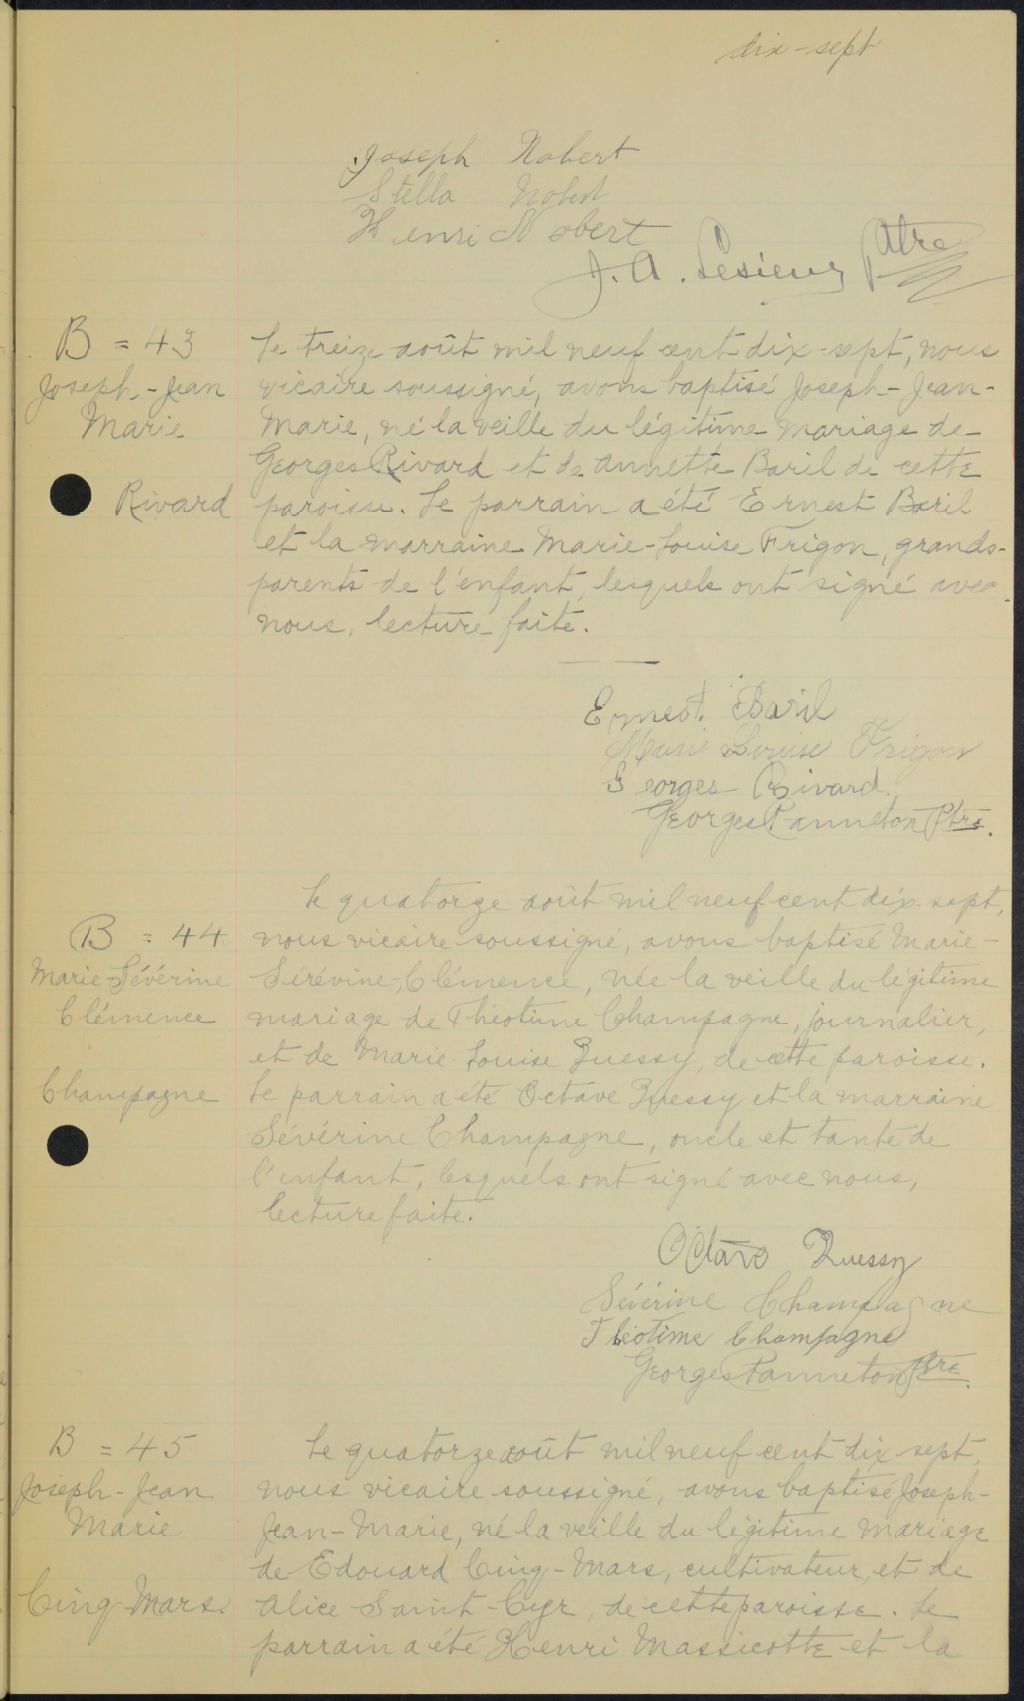 dix-sept
Joseph Nobert
Stella Nobert
Henri Nobert
J. A. Lesieur Ptre
B = 43
Joseph-Jean
Marie
Rivard
Le treize août mil neuf cent dix-sept, nous
vicaire soussigné, avons baptisé Joseph-Jean-
Marie, né la veille du légitime mariage de
Georges Rivard et de Annette Baril de cette
paroisse. Le parrain a été Ernest Baril
et la marraine Marie-Louise Frigon, grands-
parents de l'enfant, lesquels ont signé avec
nous, lecture faite.
Ernest Baril
Marie Louise Frigon
Georges Rivard
Georges Panneton Ptre.
B = 44
Marie-Sévérine
Clémence
Champagne
Le quatorze août mil neuf cent dix-sept,
nous vicaire soussigné, avons baptisé Marie-
Sérévine-Clémence, née la veille du légitime
mariage de Théotime Champagne, journalier,
et de Marie-Louise Quessy, de cette paroisse.
Le parrain a été Octave Quessy et la marraine
Sévérine Champagne, oncle et tante de
l'enfant, lesquels ont signé avec nous,
lecture faite.
Octave Quessy
Sévérine Champagne
Théotime Champagne
Georges Panneton Ptre.
B = 45
Joseph-Jean
Marie
Cinq-Mars
Le quatorze août mil neuf cent dix sept,
nous vicaire soussigné, avons baptisé Joseph-
Jean-Marie, né la veille du légitime mariage
de Edouard Cinq-Mars, cultivateur, et de
Alice Saint-Cyr, de cette paroisse. Le
parrain a été Henri Massicotte et la